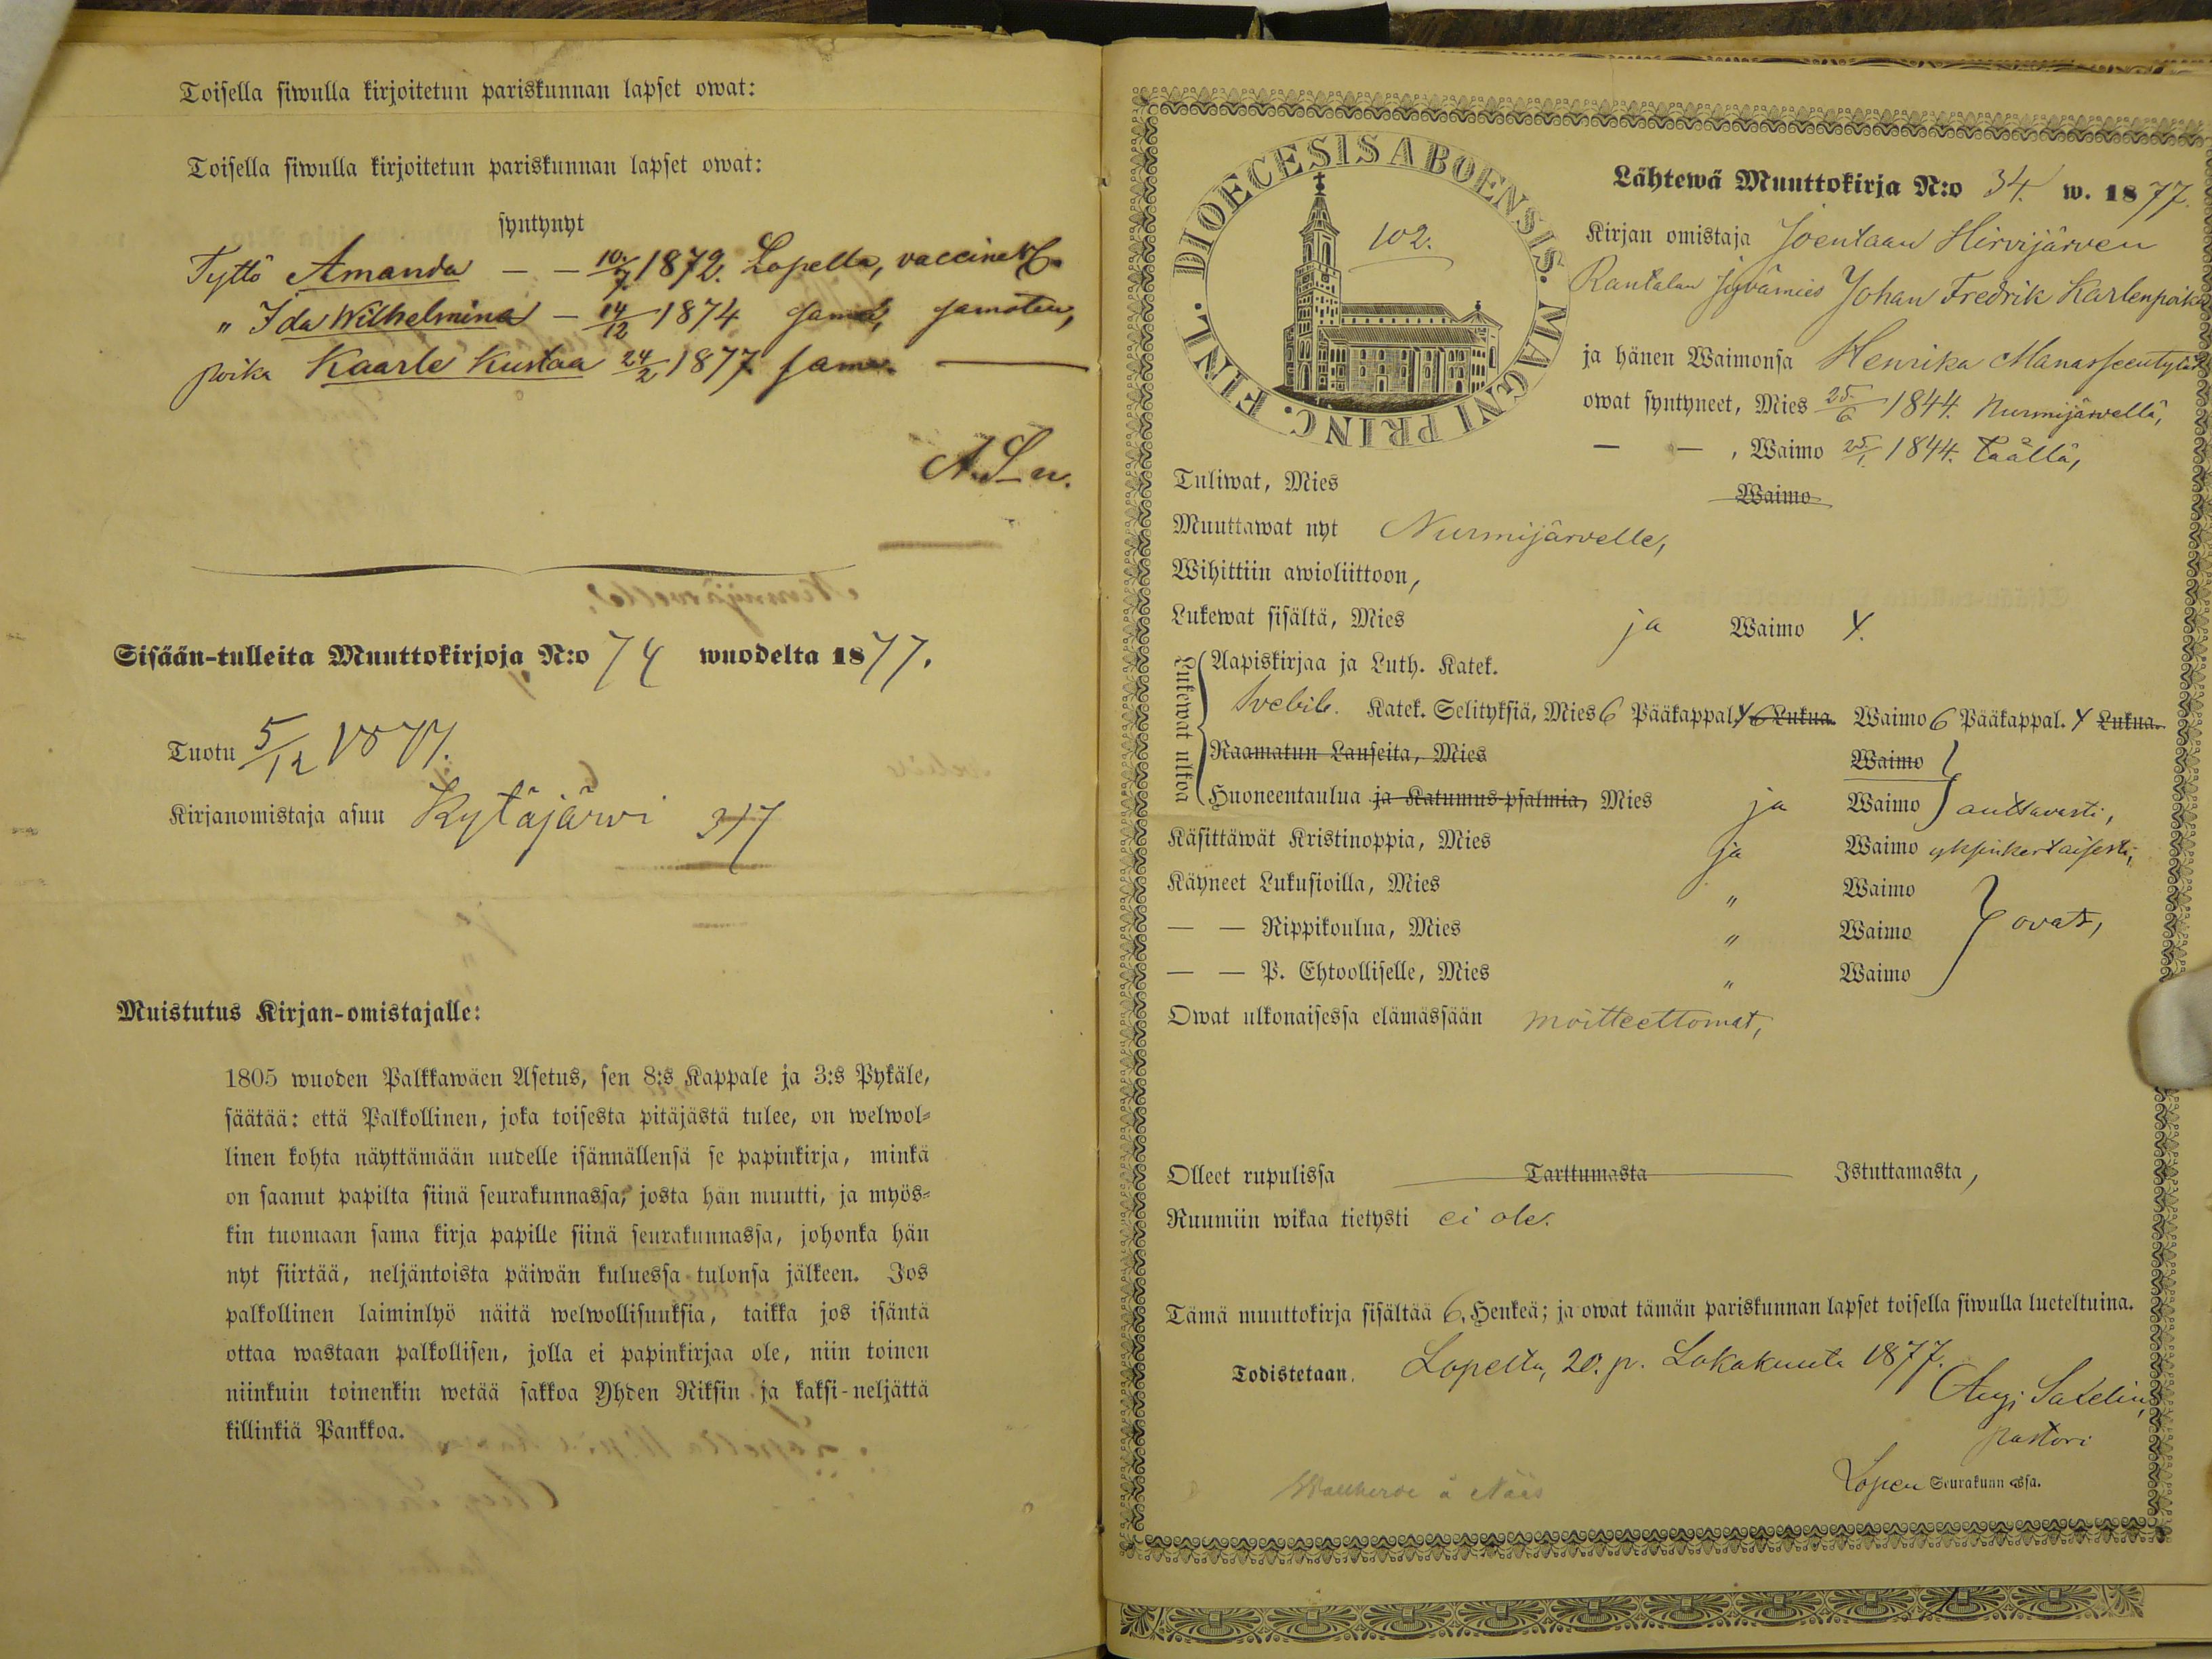 Toisella siwulla kirjoitetun pariskunnan lapset owat:
Toisella siwulla kirjoitetun pariskunnan lapset owat:
syntynyt
Tyttö Amanda — — 10/7 1872. Lopella, vaccinert
" Ida Wilhelmina — 14/12 1874 sama, samoten,
poika Kaarle Kustaa 24/2 1877 sama. —
A. L—n.
Sisään-tulleita Muuttokirjoja N:o 74 wuodelta 1877.
Tuotu 5/12 1877.
Kirjanomistaja asuu Kytäjärvi 317
Muistutus Kirjan-omistajalle:
1805 wuoden Palkkawäen Asetus, sen 8:s Kappale ja 3:s Pykäle,
säätää: että Palkollinen, joka toisesta pitäjästä tulee, on welwol-
linen kohta näyttämään uudelle isännällensä se papinkirja, minkä
on saanut papilta siinä seurakunnassa, josta hän muutti, ja myös-
kin tuomaan sama kirja papille siinä seurakunnassa, johonka hän
nyt siirtää, neljäntoista päiwän kuluessa tulonsa jälkeen. Jos
palkollinen laiminlyö näitä welwollisuuksia, taikka jos isäntä
ottaa wastaan palkollisen, jolla ei papinkirjaa ole, niin toinen
niinkuin toinenkin wetää sakkoa Yhden Riksin ja kaksi-neljättä
killinkiä Pankkoa.
DIOECESIS ABOENSIS. MAGNI PRINC. FINL.
102.
Lähtewä Muuttokirja N:o 34. w. 1877.
Kirjan omistaja Joentaan Hirvijärven
Rantalan jyvämies Johan Fredrik Karlenpoika
ja hänen Waimonsa Henrika Manasseentytär
owat syntyneet, Mies 25/6 1844. Nurmijärvellä,
— — , Waimo 25/1. 1844. täällä,
Tuliwat, Mies Waimo
Muuttawat nyt Nurmijärvelle,
Wihittiin awioliittoon,
Lukewat sisältä, Mies ja Waimo X.
Lukewat ulkoa
Aapiskirjaa ja Luth. Katek.
Svebil. Katek. Selityksiä, Mies 6 Pääkappal. X 6 Lukua. Waimo 6 Pääkappal. X Lukua.
Raamatun Lauseita, Mies Waimo
Huoneentaulua ja Katumus-psalmia, Mies ja Waimo auttavasti,
Käsittäwät Kristinoppia, Mies ja Waimo yksinkertaisesti,
Käyneet Lukusioilla, Mies " Waimo
— — Rippikoulua, Mies " Waimo ovat,
— — P. Ehtoolliselle, Mies " Waimo
Owat ulkonaisessa elämässään moitteettomat,
Olleet rupulissa Tarttumasta Istuttamasta,
Ruumiin wikaa tietysti ei ole.
Tämä muuttokirja sisältää 6. Henkeä; ja owat tämän pariskunnan lapset toisella siwulla lueteltuina.
Todistetaan. Lopella, 20. p. Lokakuuta 1877.
Aug. Sadelin,
pastori
Lopen Seurakunnassa.
å Näs